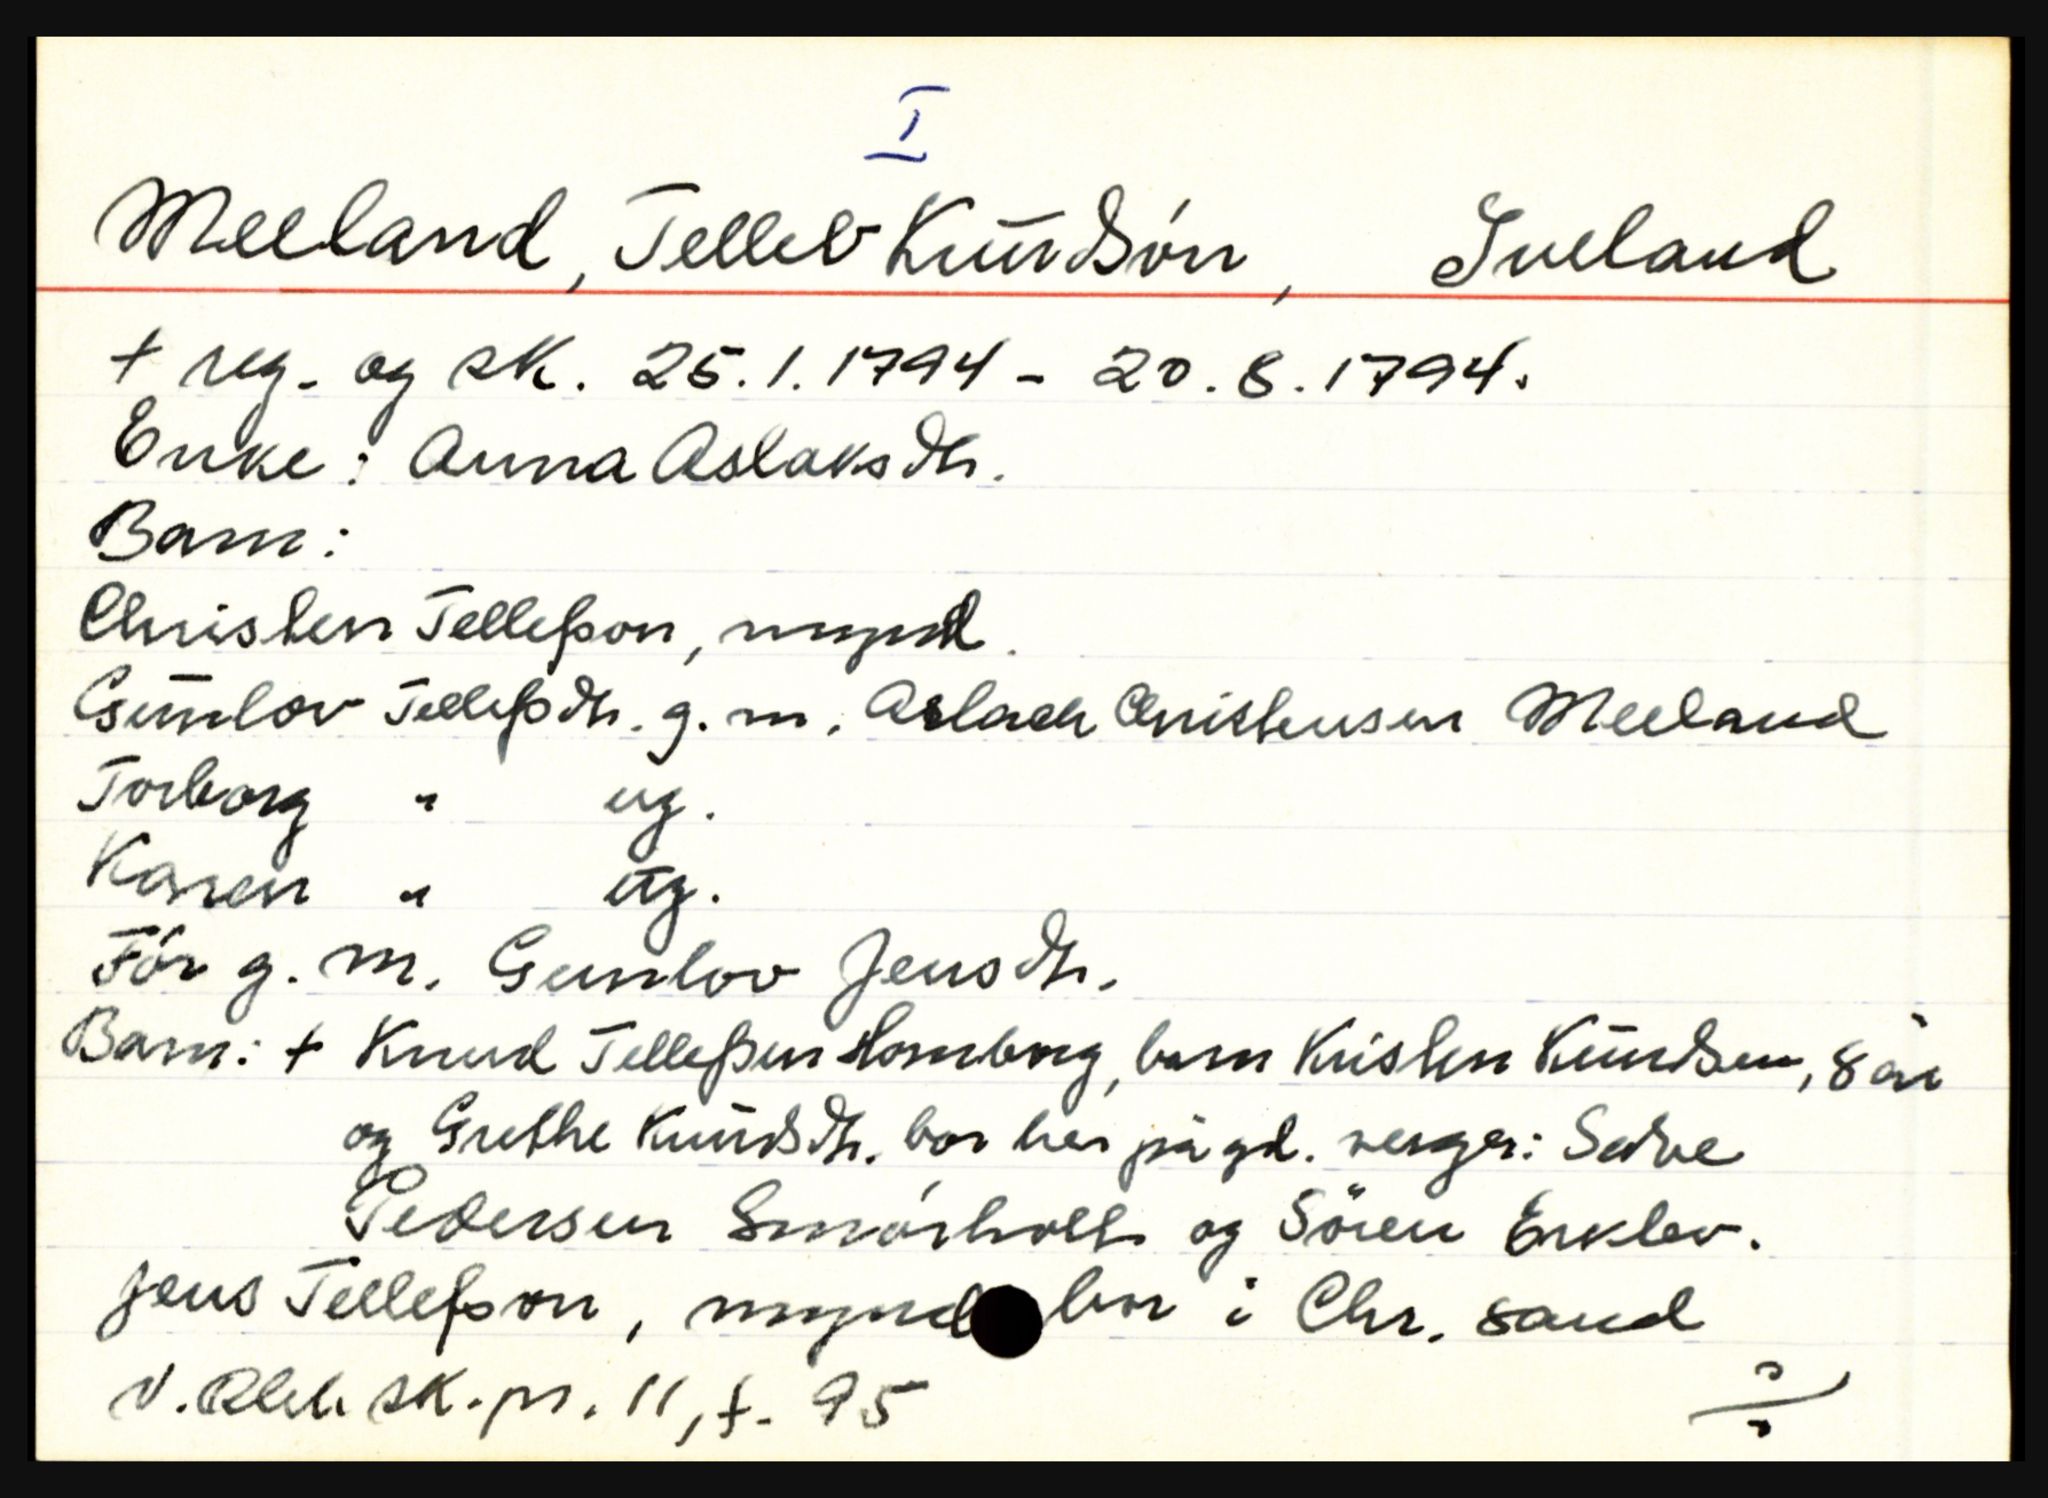 I
Meeland, Tellev Knudsön, Iveland
+ reg. og sk. 25.1.1794 - 20.8.1794.
Enke: Anna Aslaksdtr.
Barn:
Christen Tellefson, mynd.
Gunlov Tellefsdtr. g.m. Aslach Christensen Meeland
Torborg " ug.
Karen " ug.
För g. m. Gunlov Jensdtr.
Barn: + Knud Tellefsen Homborg, barn Kristen Knudsen, 8 år
og Grethe Knudsdtr. bor her på gd. verger: Salve
Pedersen Smörholt og Sören Erklev.
Jens Tellefson, mynd bor i Chr. sand
V. Rbdl. sk. pr. 11, f. 95